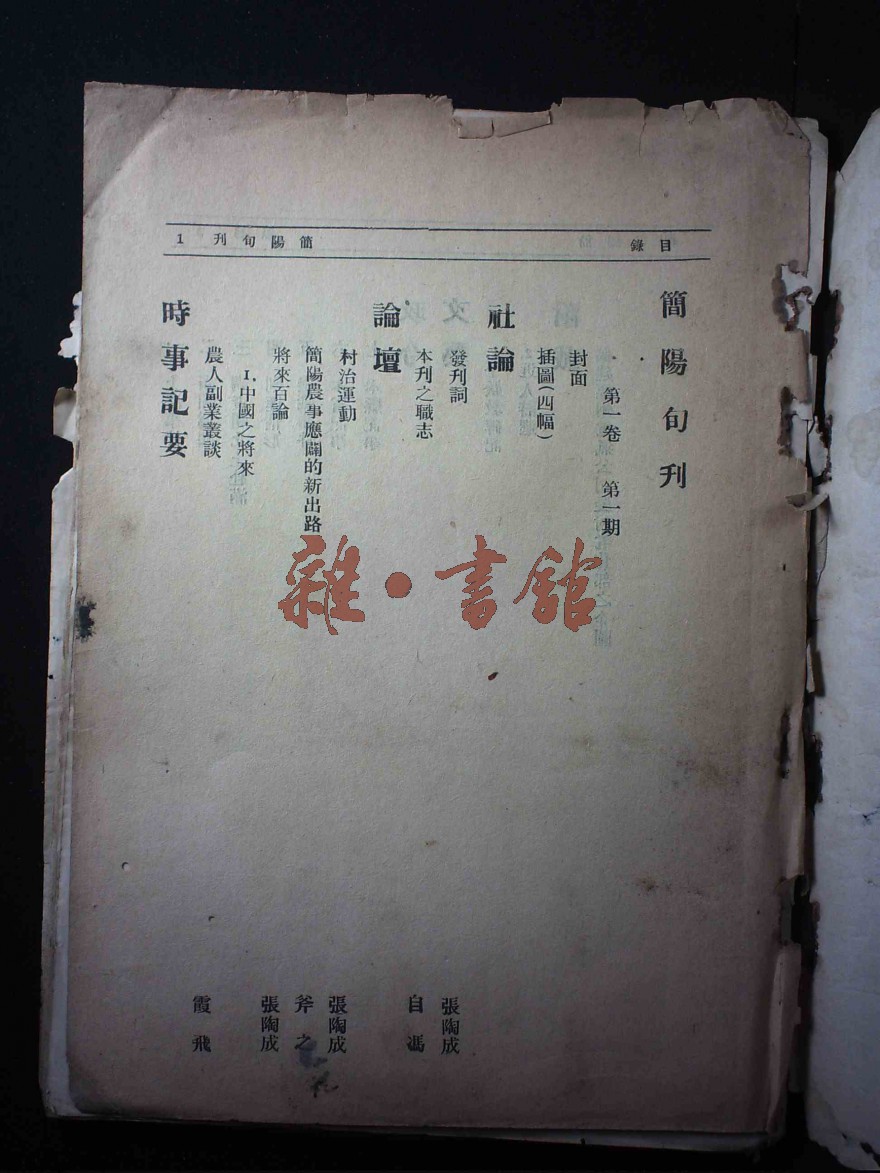 目錄
簡陽旬刊 1
簡陽旬刊
第一卷 第一期
封面
插圖(四幅)
社論
發刊詞 張陶成
本刊之職志 自馮
論壇
村治運動 張陶成
簡陽農事應闢的新出路 斧之
將來百論 張陶成
I.中國之將來
農人副業叢談 霞飛
時事記要
雜·書館